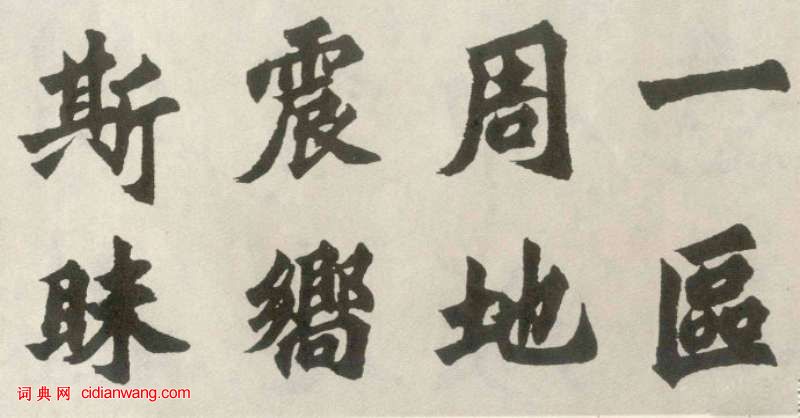 一區
周地
震嚮
斯眛
词典网 cidianwang.com